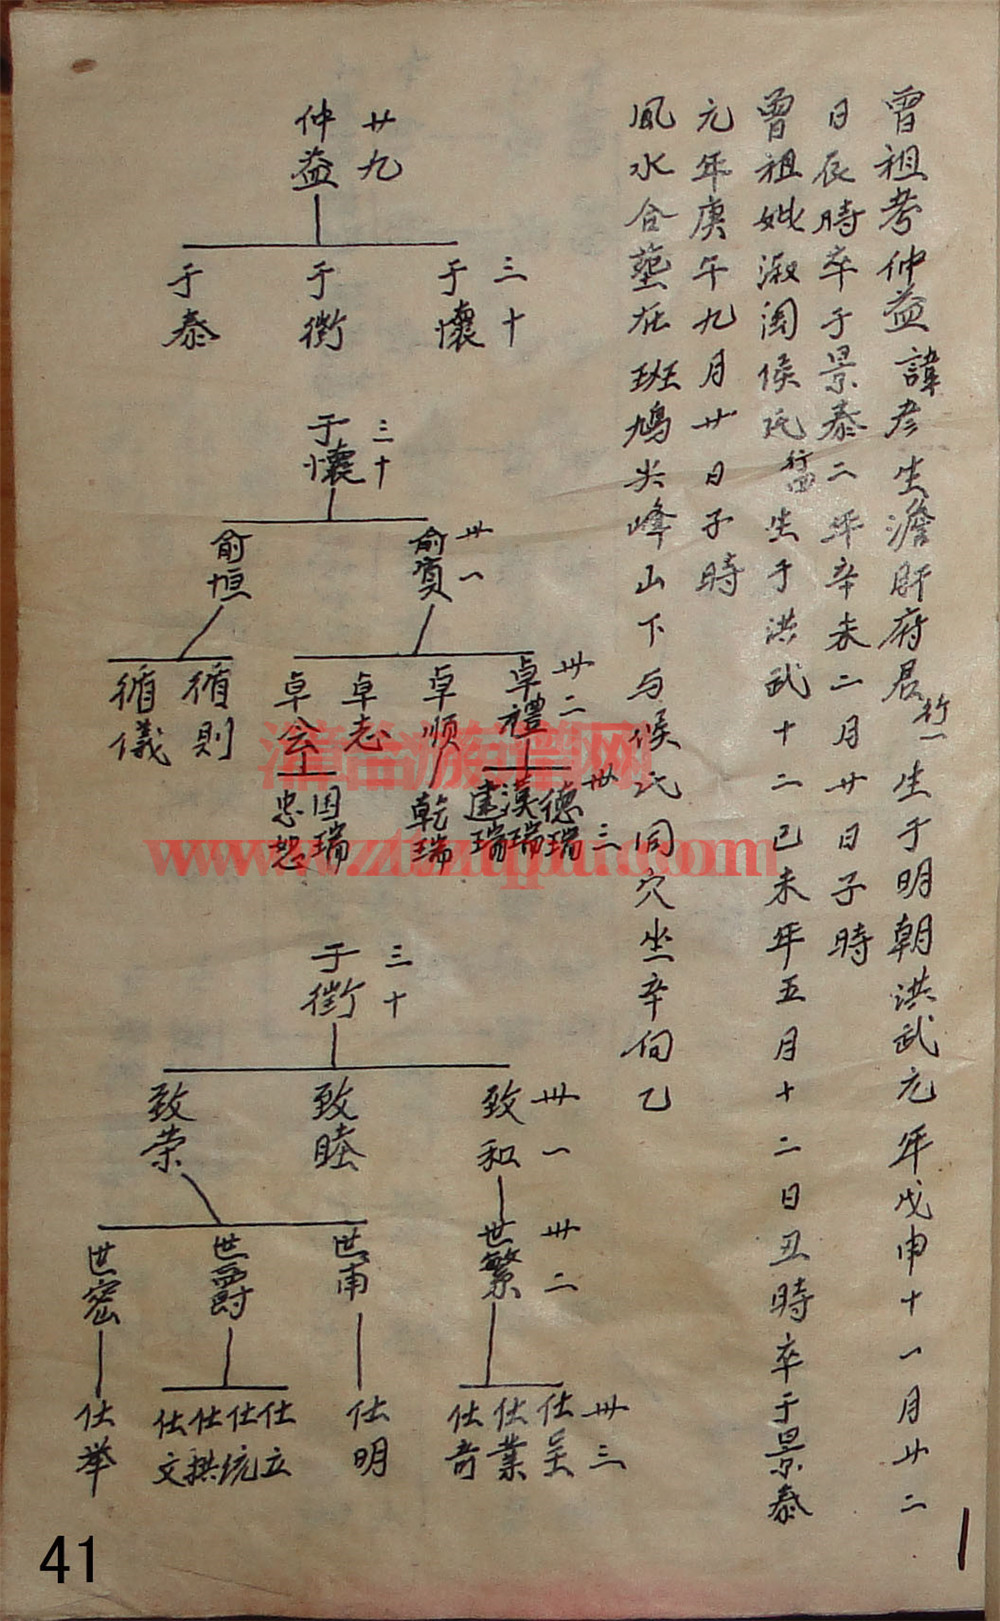 曾祖考仲益諱彥生澹肝府君行一生于明朝洪武元年戊申十一月廿二
日辰時卒于景泰二年辛未二月廿日子時
曾祖妣淑閨侯氏行四生于洪武十二己未年五月十二日丑時卒于景泰
元年庚午九月廿日子時
風水合塟在班鳩尖峰山下与候氏同穴坐辛向乙
廿九
仲益
三十
于懷
于衡
于泰
三十
于懷
卅一
俞寬
俞恒
卅二
卓禮
卓順
卓志
卓会
循則
循儀
卅三
德瑞
漢瑞
建瑞
乾瑞
国瑞
忠恕
三十
于衡
卅一
致和
致睦
致荣
卅二
世繁
世甫
世爵
世密
卅三
仕呈
仕業
仕奇
仕明
仕立
仕统
仕拱
仕文
仕举
漳台族譜网
www.ztzupu.com
41